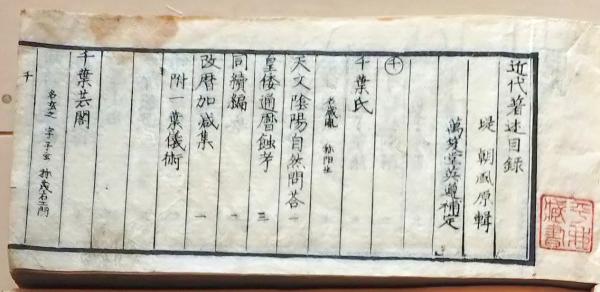 近代著述目録
堤 朝風原輯
萬笈堂英遵補定
千
千葉氏
名歳胤 称陽生
天文陰陽自然問答 一
皇倭通暦蝕考 三
同續編
改暦加减集 一
附一葉儀術
千葉芸閣
名玄之 字子玄 称茂右エ門
千